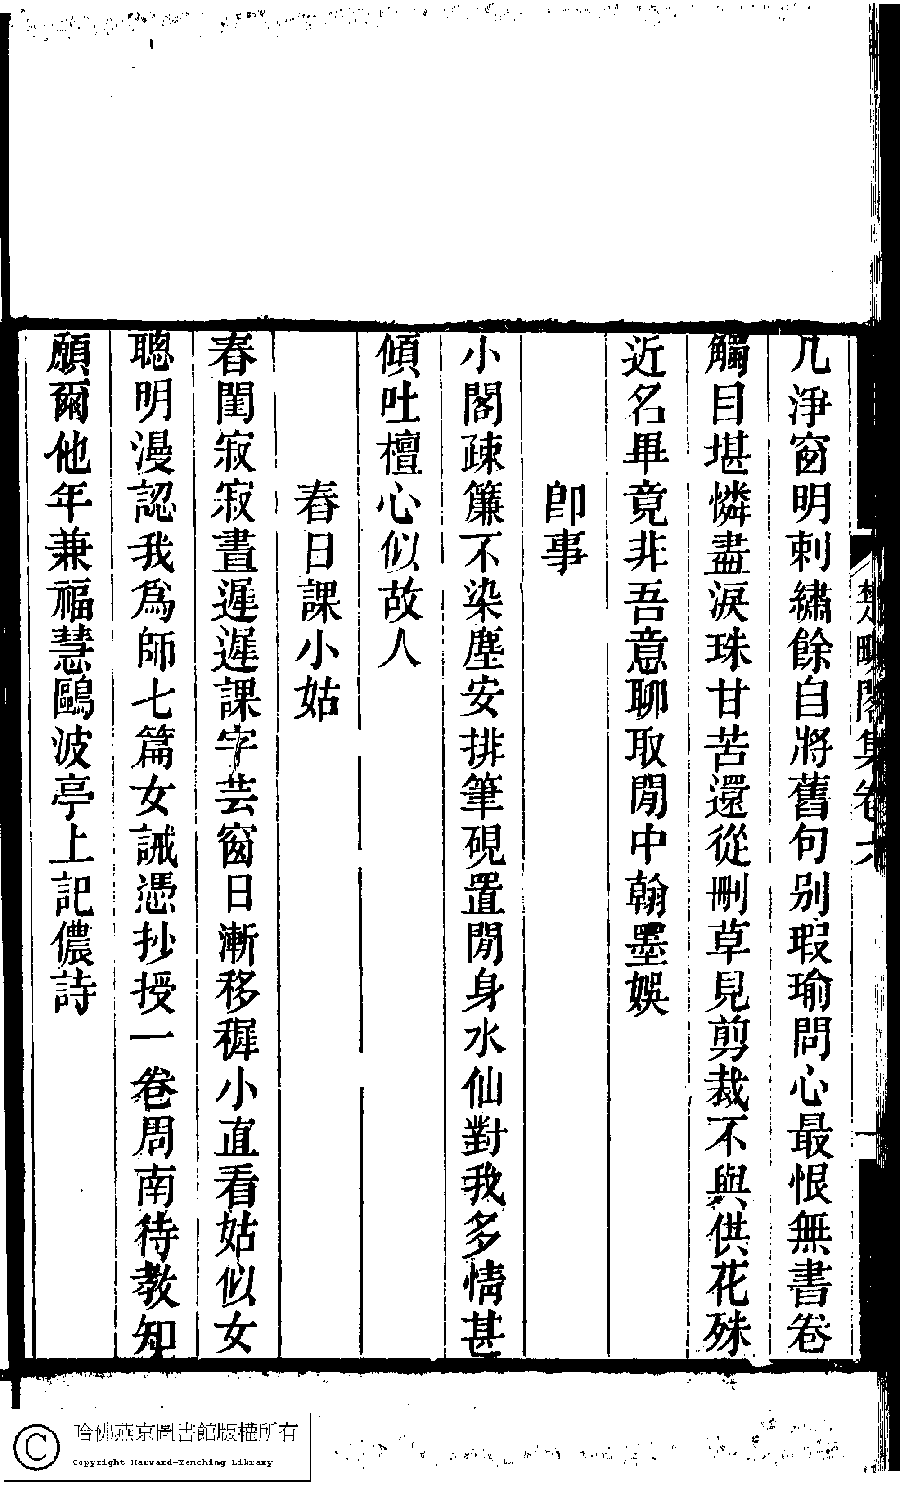 几淨窗明刺繡餘自將舊句別瑕瑜問心最恨無書卷
觸目堪憐盡淚珠甘苦還從刪草見剪裁不與供花殊
近名畢竟非吾意聊取閒中翰墨娛
卽事
小閣疎簾不染塵安排筆硯置閒身水仙對我多情甚
傾吐檀心似故人
春日課小姑
春閨寂寂晝遲遲課字芸窗日漸移穉小直看姑似女
聰明漫認我爲師七篇女誡憑抄授一卷周南待教知
願爾他年兼福慧鷗波亭上記儂詩
楚畹閣集卷六
一
哈佛燕京圖書館版權所有
Copyright Harvard-Yenching Library